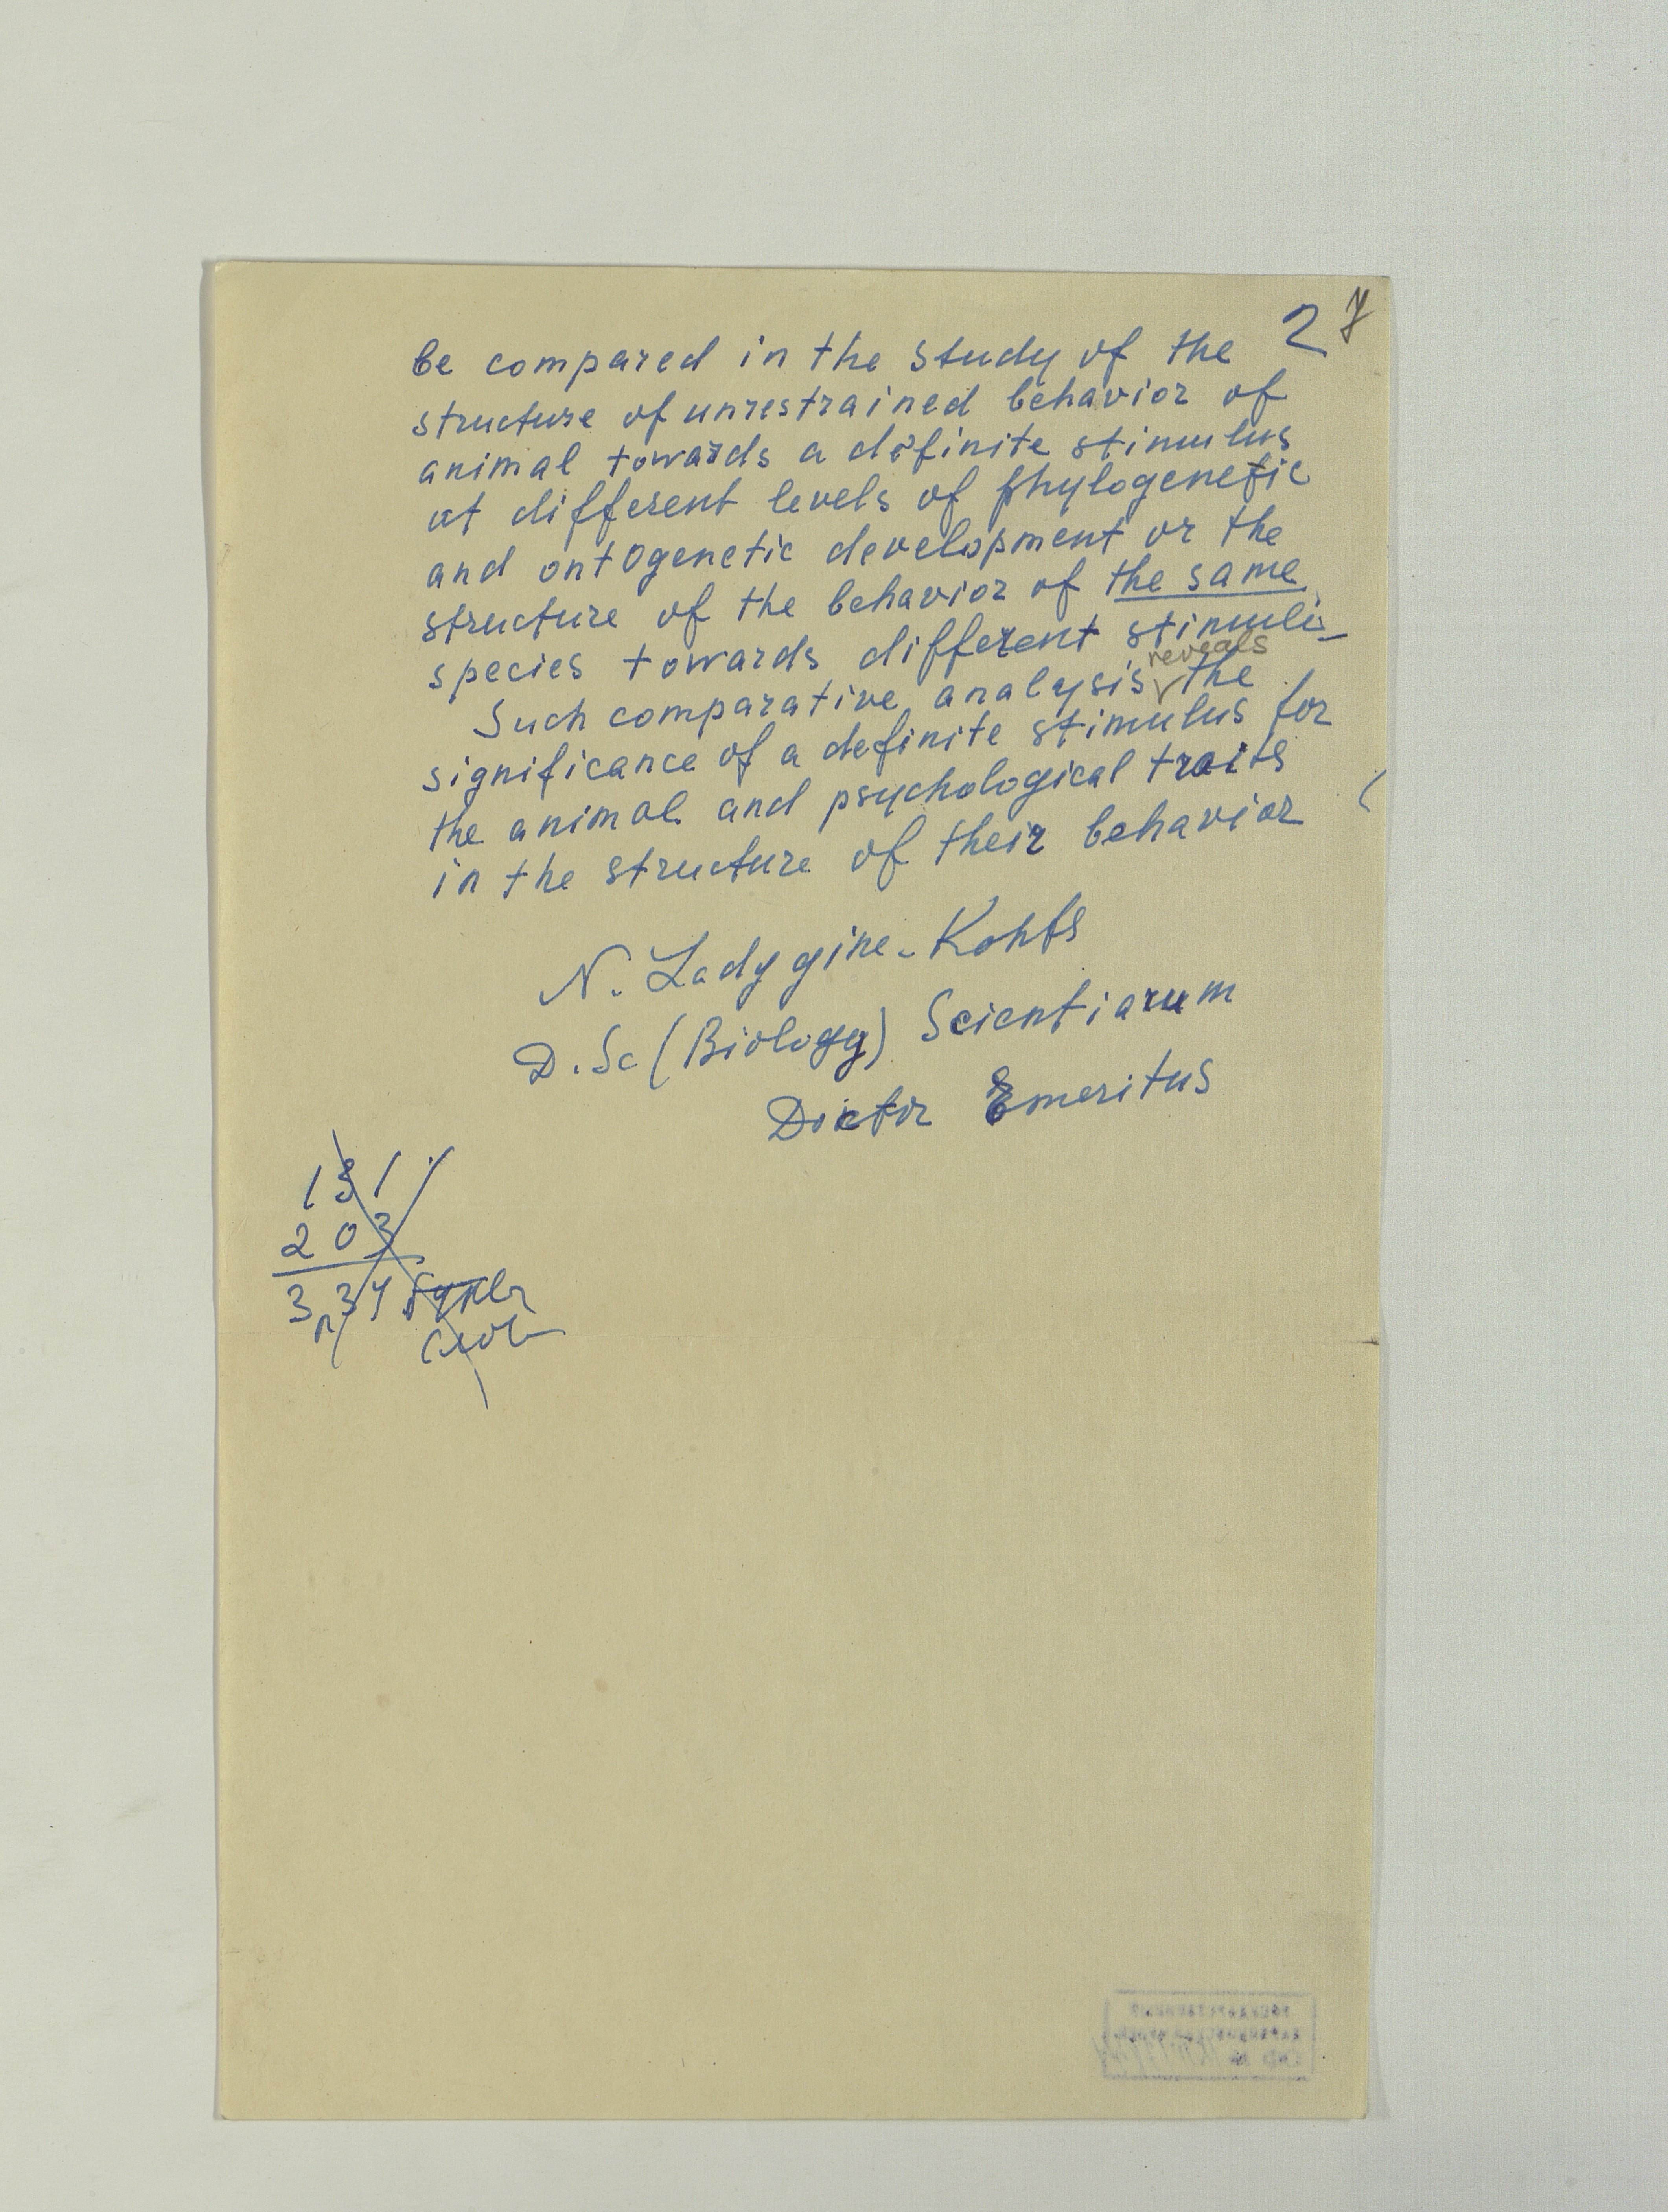 2 7
be compared in the study of the
structure of unrestrained behavior of
animal towards a definite stimulus
at different levels of phylogenetic
and ontogenetic development or the
structure of the behavior of the same
species towards different stimuli
reveals
Such comparative analysis the
significance of a definite stimulus for
the animal and psychological traits
in the structure of their behavior
N. Ladygine-Kohts
D. Sc (Biology) Scientiarum
Doctor Emeritus
131
203
334